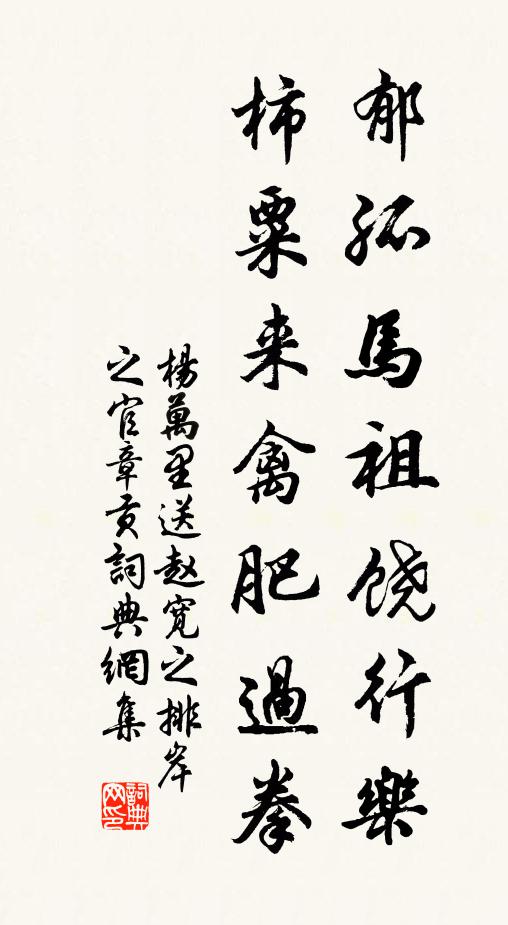 郁孤馬祖饶行樂
柿粟来禽肥過拳
楊萬里送赵宽之排岸
之官章贡詞典網集
詞典网印